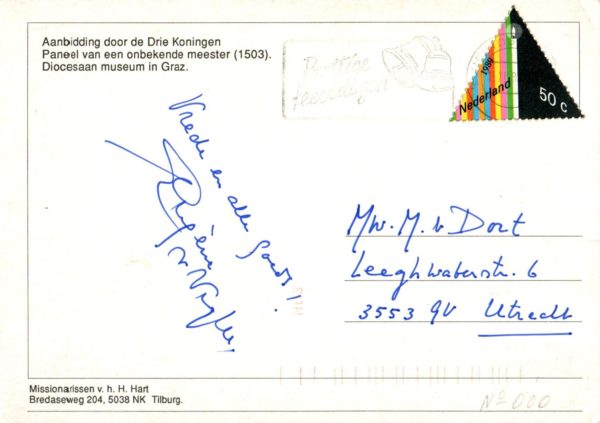 Aanbidding door de Drie Koningen
Paneel van een onbekende meester (1503).
Diocesaan museum in Graz.
Prettige
feestdagen
1989
Nederland
50 c
Vrede en alle Goeds!
Eugène
v
Mw. M. v Dort
Leeghwaterstr. 6
3553 GV Utrecht
Missionarissen v. h. H. Hart
Bredaseweg 204, 5038 NK Tilburg.
Nº 000